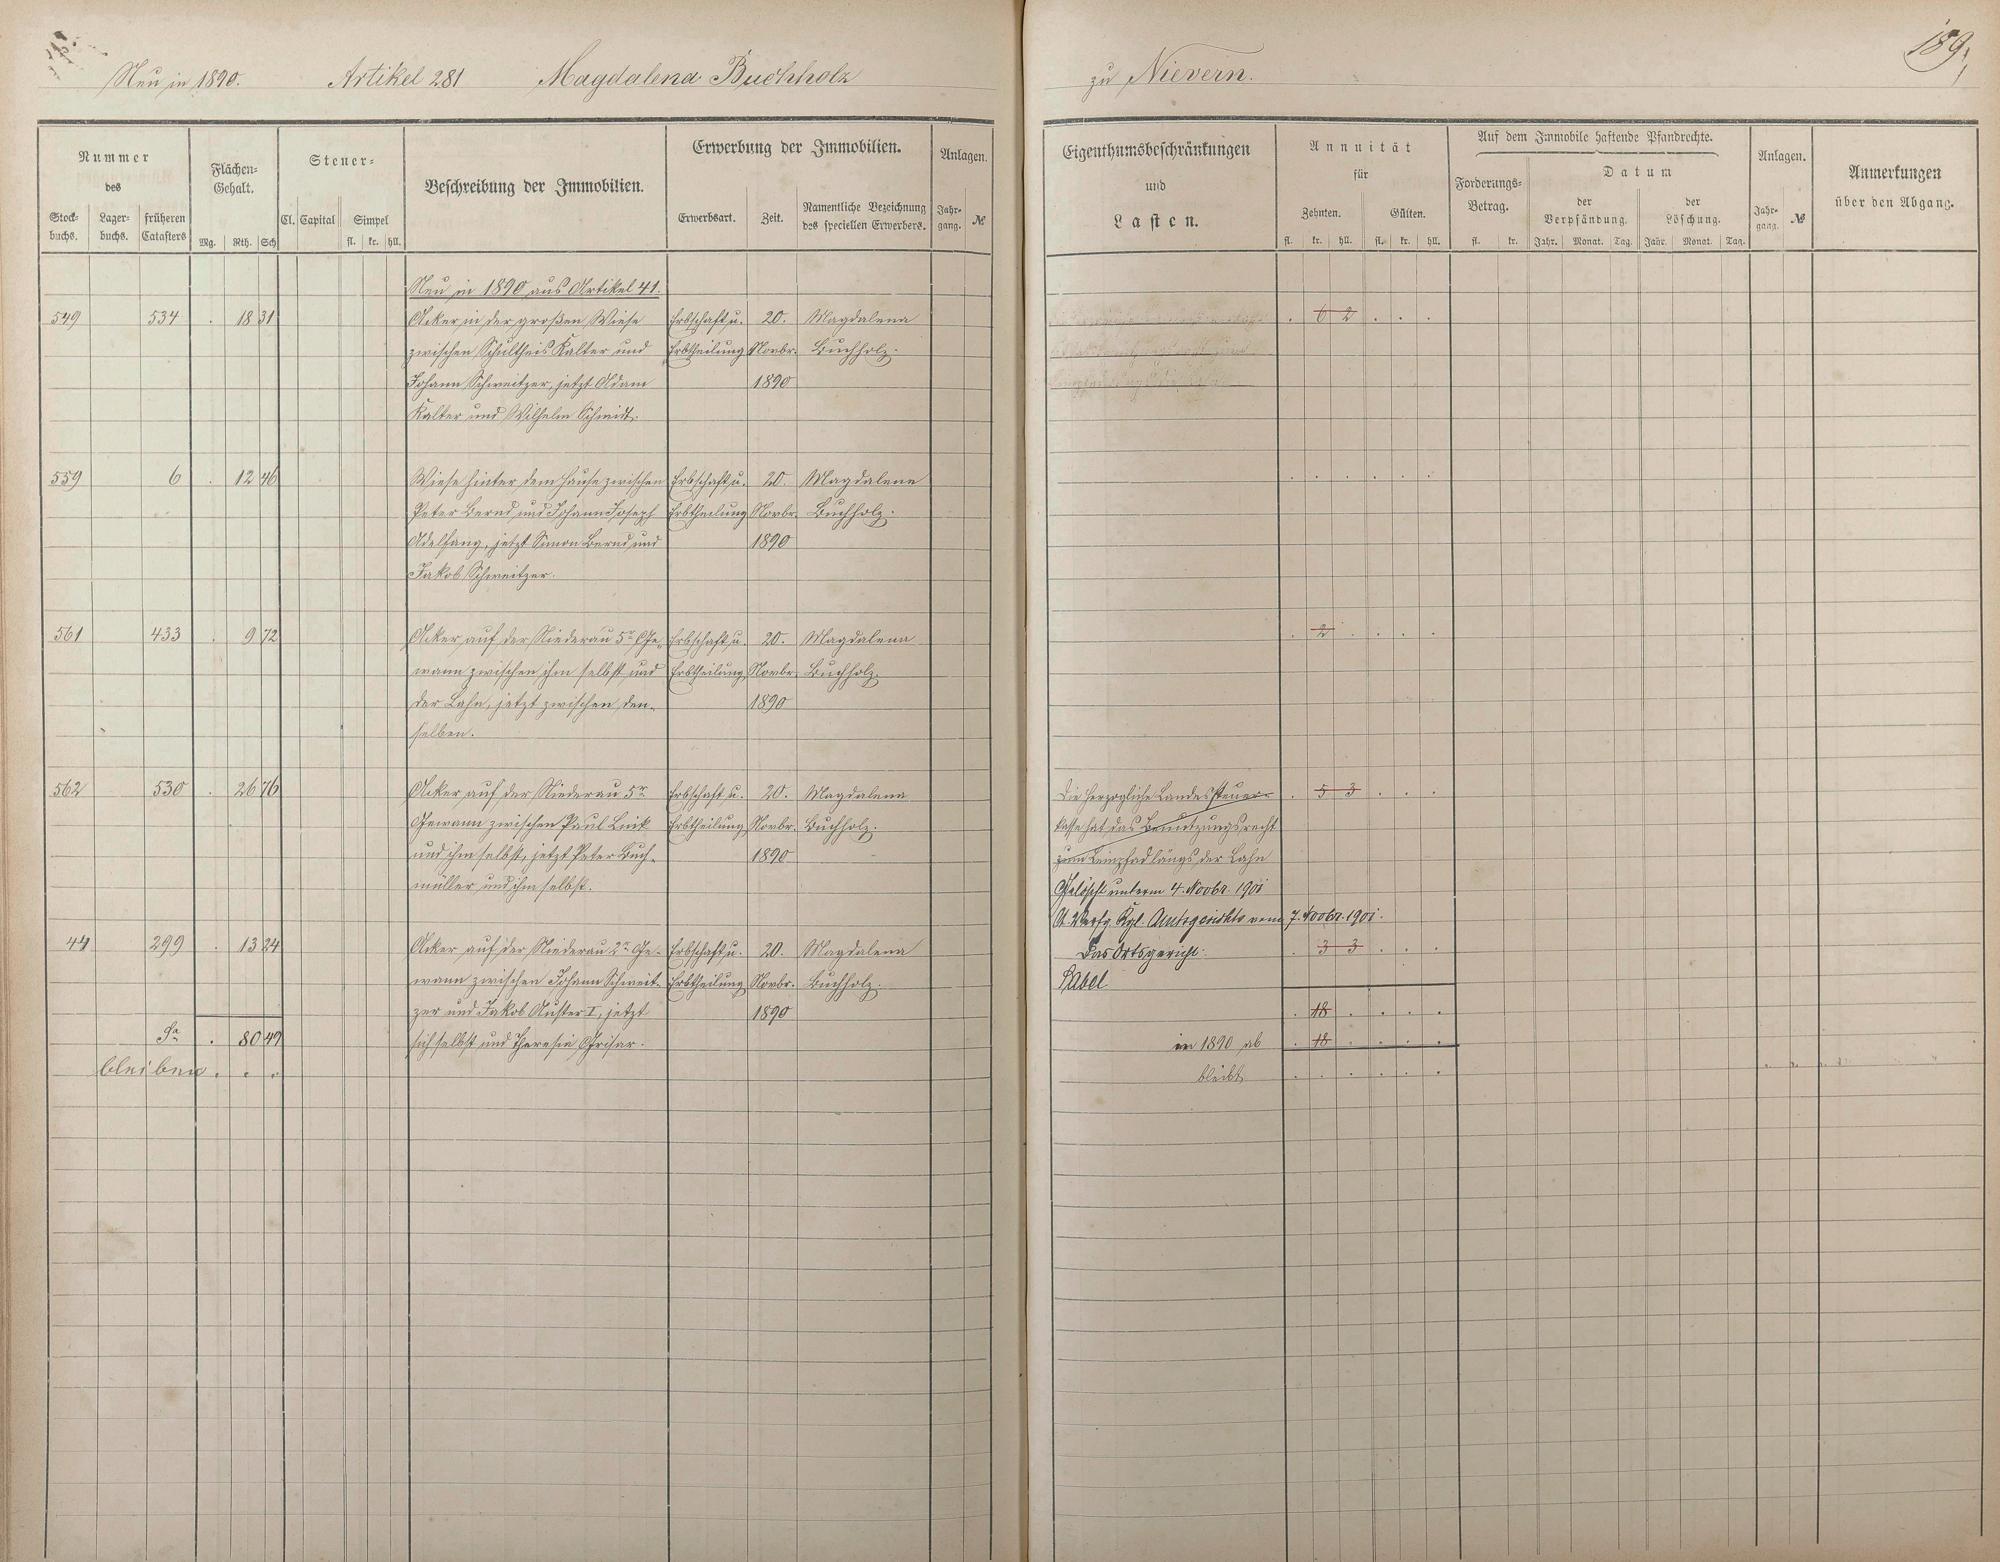 Neu in 1890. Artikel 281 Magdalena Buchholz
zu Nievern. 189.
Nummer
des
Stock-
buchs.
Lager-
buchs.
früheren
Catasters
Flächen-
Gehalt.
Mg. Rth. Sch
Steuer-
Cl. Capital Simpel
fl. kr. hll.
Beschreibung der Immobilien.
Erwerbung der Immobilien.
Erwerbsart. Zeit. Namentliche Bezeichnung
des speciellen Erwerbers.
Anlagen.
Jahr-
gang. №
Eigenthumsbeschränkungen
und
Lasten.
Annuität
für
Zehnten. Gülten.
fl. kr. hll. fl. kr. hll.
Auf dem Immobile haftende Pfandrechte.
Forderungs-
Betrag.
fl. kr.
Datum
der
Verpfändung.
Jahr. Monat. Tag.
der
Löschung.
Jahr. Monat. Tag.
Anlagen.
Jahr-
gang. №
Anmerkungen
über den Abgang.
Neu in 1890 aus Artikel 41.
549 534 . 18 31 Acker in der großen Wiese Erbschaft u. 20. Magdalena . 6 2 . . .
zwischen Schultheis Kalter und Erbtheilung Novbr. Buchholz.
Johann Schweitzer, jetzt Adam 1890
Kalter und Wilhelm Schmidt.
559 6 . 12 46 Wiese hinter dem Hause zwischen Erbschaft u. 20. Magdalena . . . . . .
Peter Bernd und Johann Joseph Erbtheilung Novbr. Buchholz.
Adelfang, jetzt Simon Bernd und 1890
Jakob Schweitzer.
561 433 . 9 72 Acker auf der Niederau 5r Ge- Erbschaft u. 20. Magdalena . 2 . . . .
wann zwischen ihm selbst und Erbtheilung Novbr. Buchholz.
der Lahn, jetzt zwischen den- 1890
selben.
562 530 . 26 76 Acker auf der Niederau 5r Erbschaft u. 20. Magdalena Die Herzogliche Landessteuer- . 5 3 . . .
Gewann zwischen Paul Linck Erbtheilung Novbr. Buchholz. kasse hat das Benutzungsrecht
und ihm selbst, jetzt Peter Buch- 1890 zum Leinpfad längs der Lahn
müller und ihm selbst. Gelöscht unterm 4. Novbr. 1901
Verfg. Kgl. Amtsgerichts vom 7. Novbr. 1901.
44 299 . 13 24 Acker auf der Niederau 2r Ge- Erbschaft u. 20. Magdalena Das Ortsgericht. . 3 3 . . .
wann zwischen Johann Schweit- Erbtheilung Novbr. Buchholz. Label
zer und Jakob Auster I, jetzt 1890 . 18 . . . .
Sa . 80 49 sich selbst und Theresia Grisar. in 1890 ab . 18 . . . .
bleiben . . . bleibt . . . . . .